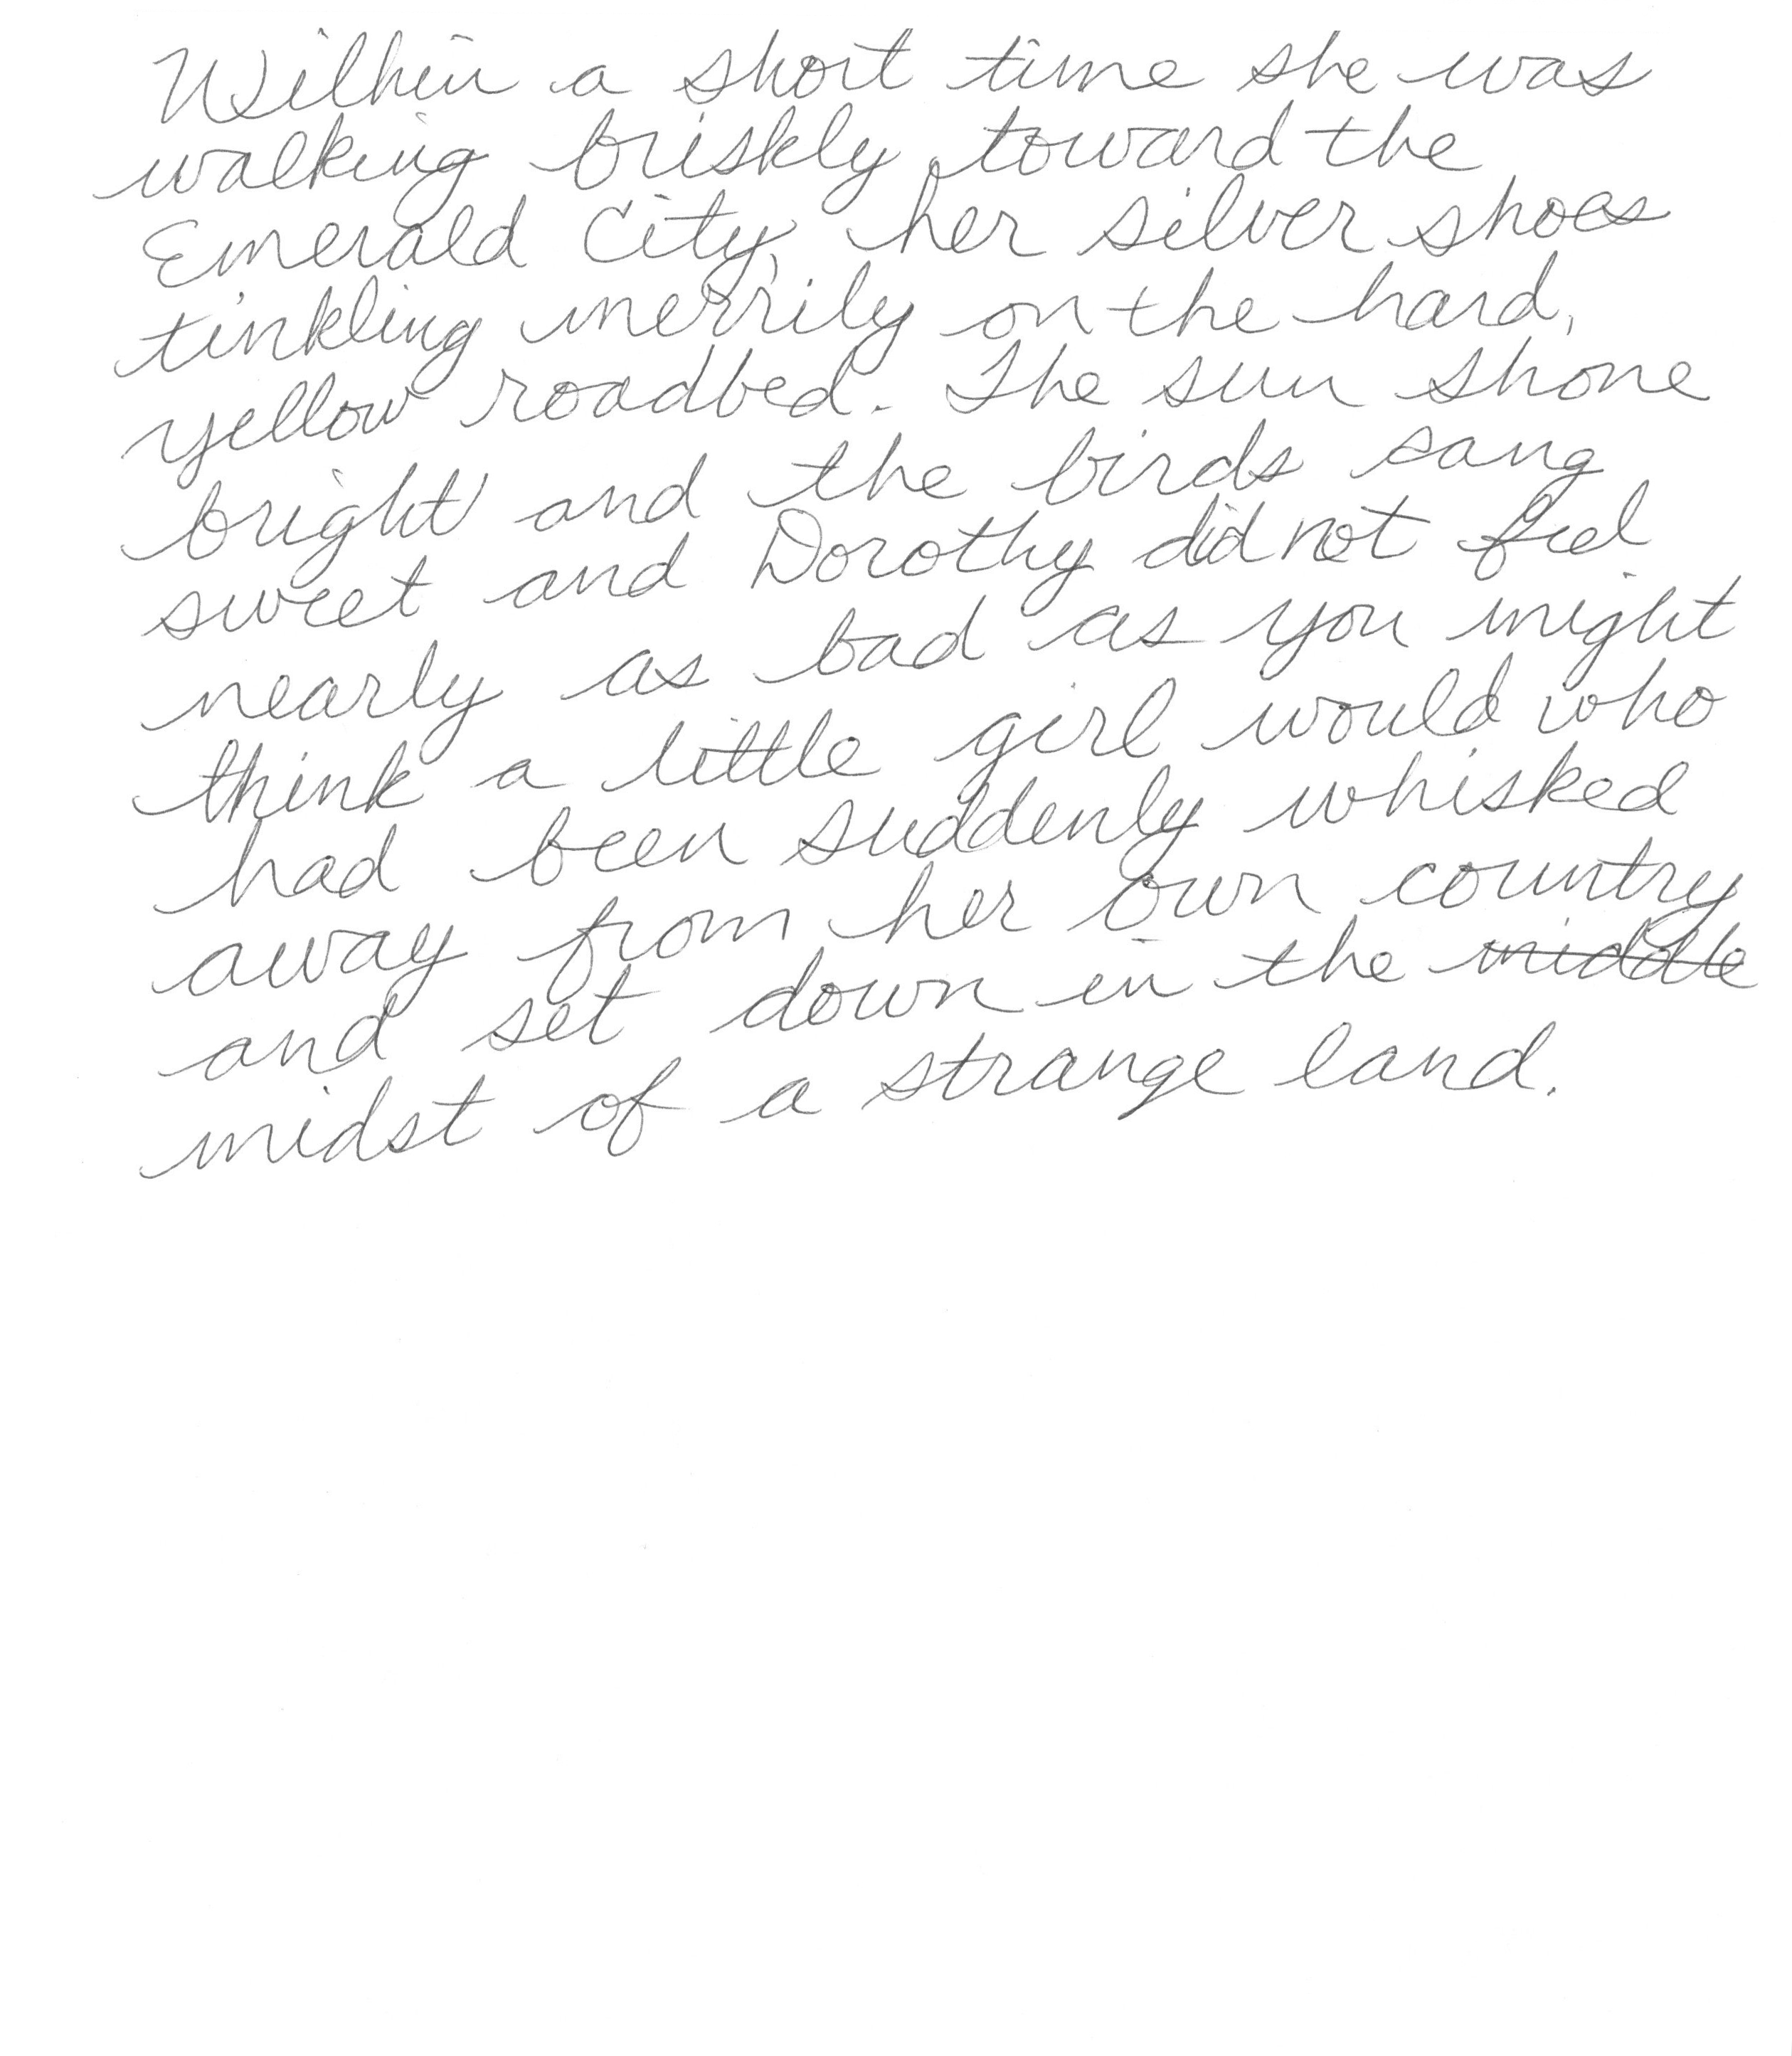 Within a short time she was
walking briskly toward the
Emerald City, her silver shoes
tinkling merrily on the hard,
yellow roadbed. The sun shone
bright and the birds sang
sweet and Dorothy did not feel
nearly as bad as you might
think a little girl would who
had been suddenly whisked
away from her own country
and set down in the ~~middle~~
midst of a strange land.